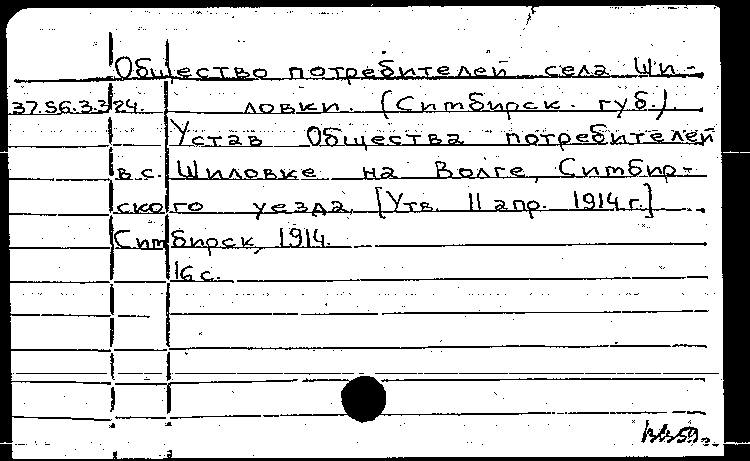 Общество потребителей села Ши-
37.56.3.324. ловки. (Симбирск. губ.).
Устав Общества потребителей
в с. Шиловке на Волге, Симбир-
ского уезда. [Утв. 11 апр. 1914 г.]
Симбирск, 1914.
16 с.